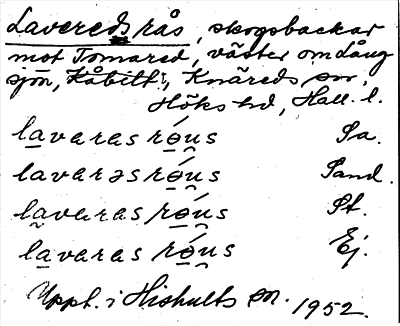 Lavereds rås, skogsbackar
mot Tomared, väster om Lång
sjön, Kåbilt, Knäreds sn,
Höks hd, Hall. l.
lavaras rɵ́u̯s Pa.
lavarəs rɵ́u̯s Pand.
lavaras rɵ́u̯s Pt.
lavaras rɵ́u̯s Ej.
Uppt. i Hishults sn. 1952.